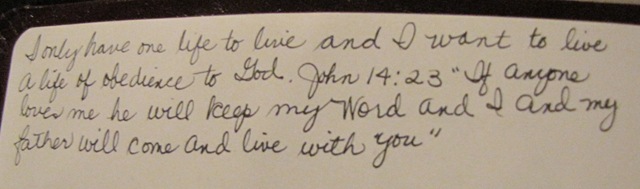 I only have one life to live and I want to live
a life of obedience to God. John 14:23 "If anyone
loves me he will keep my Word and I and my
father will come and live with you"